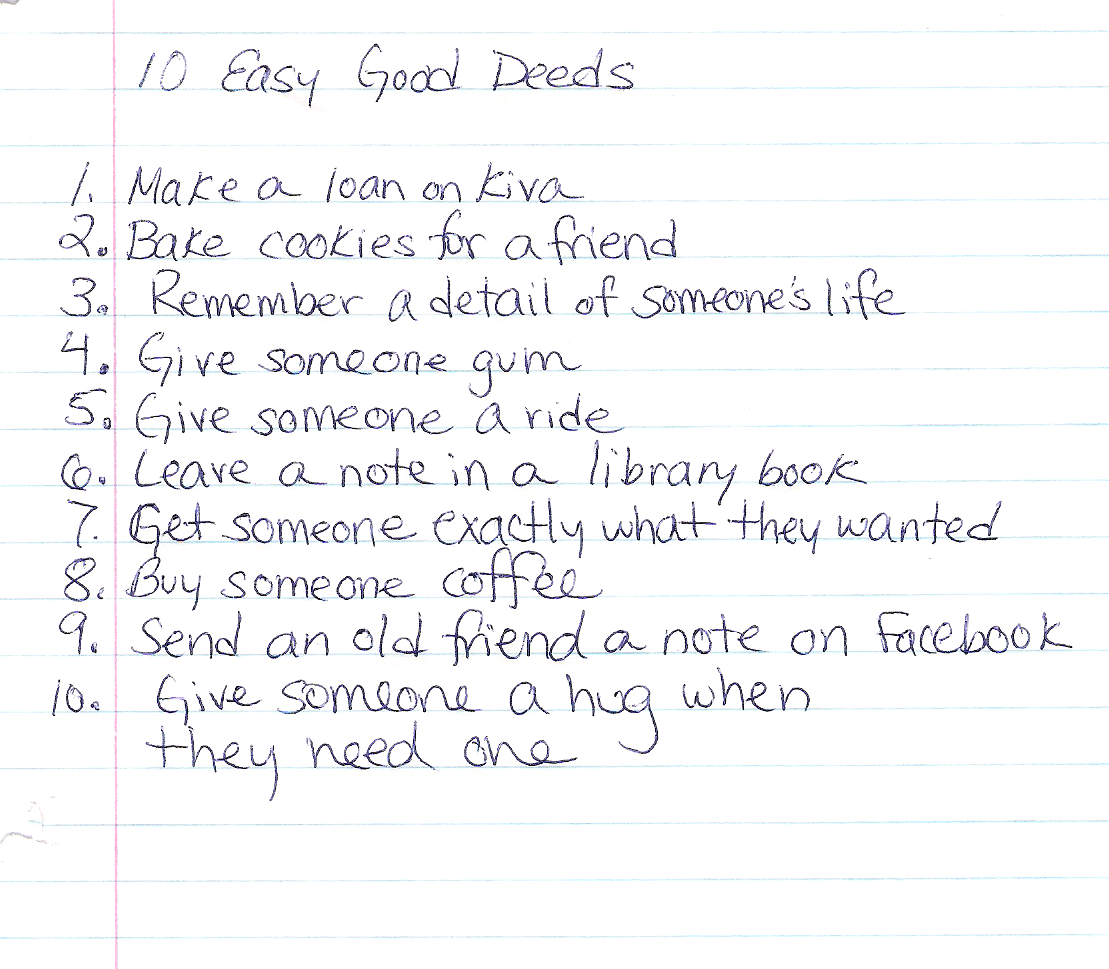 10 Easy Good Deeds
1. Make a loan on Kiva
2. Bake cookies for a friend
3. Remember a detail of someone's life
4. Give someone gum
5. Give someone a ride
6. Leave a note in a library book
7. Get someone exactly what they wanted
8. Buy someone coffee
9. Send an old friend a note on Facebook
10. Give someone a hug when
they need one